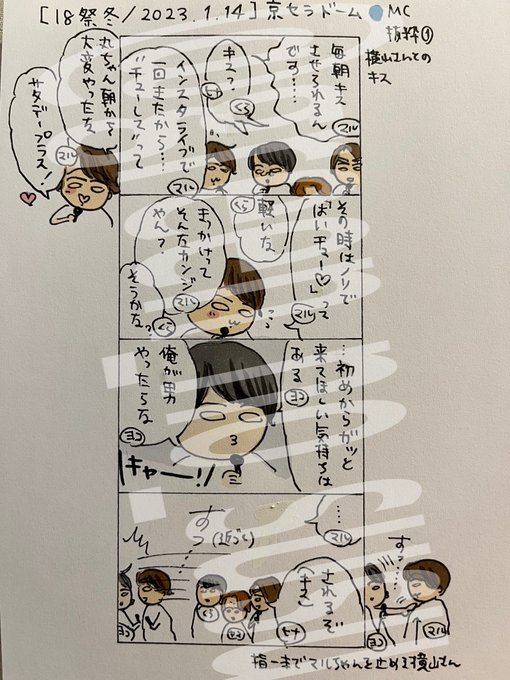 [18祭冬/2023.1.14]京セラドーム●MC
抜粋①
横山さんとの
キス
毎朝キス
させられるんです……
マル
キス?
くら
ヒナ
インスタライブで
一回きたから…
"チューしろ"って
マル
丸ちゃん朝から
大変やったな
マル
サタデープラス!
その時はノリで
「ばいチュー♡」って
マル
軽いな
くら
きっかけって
そんなカンジ
やん?
マル
そうかな?
くら
…初めからガッと
来てほしい気持ちは
ある
ヨコ
俺が男
やったらな
ヨコ
キャー!!
……
マル
すっ(近づく)
されるぞ
(キス)
ヒナ
ヨコ
くら
すっ……
ヨコ
マル
指一本でマルちゃんを止める横山さん